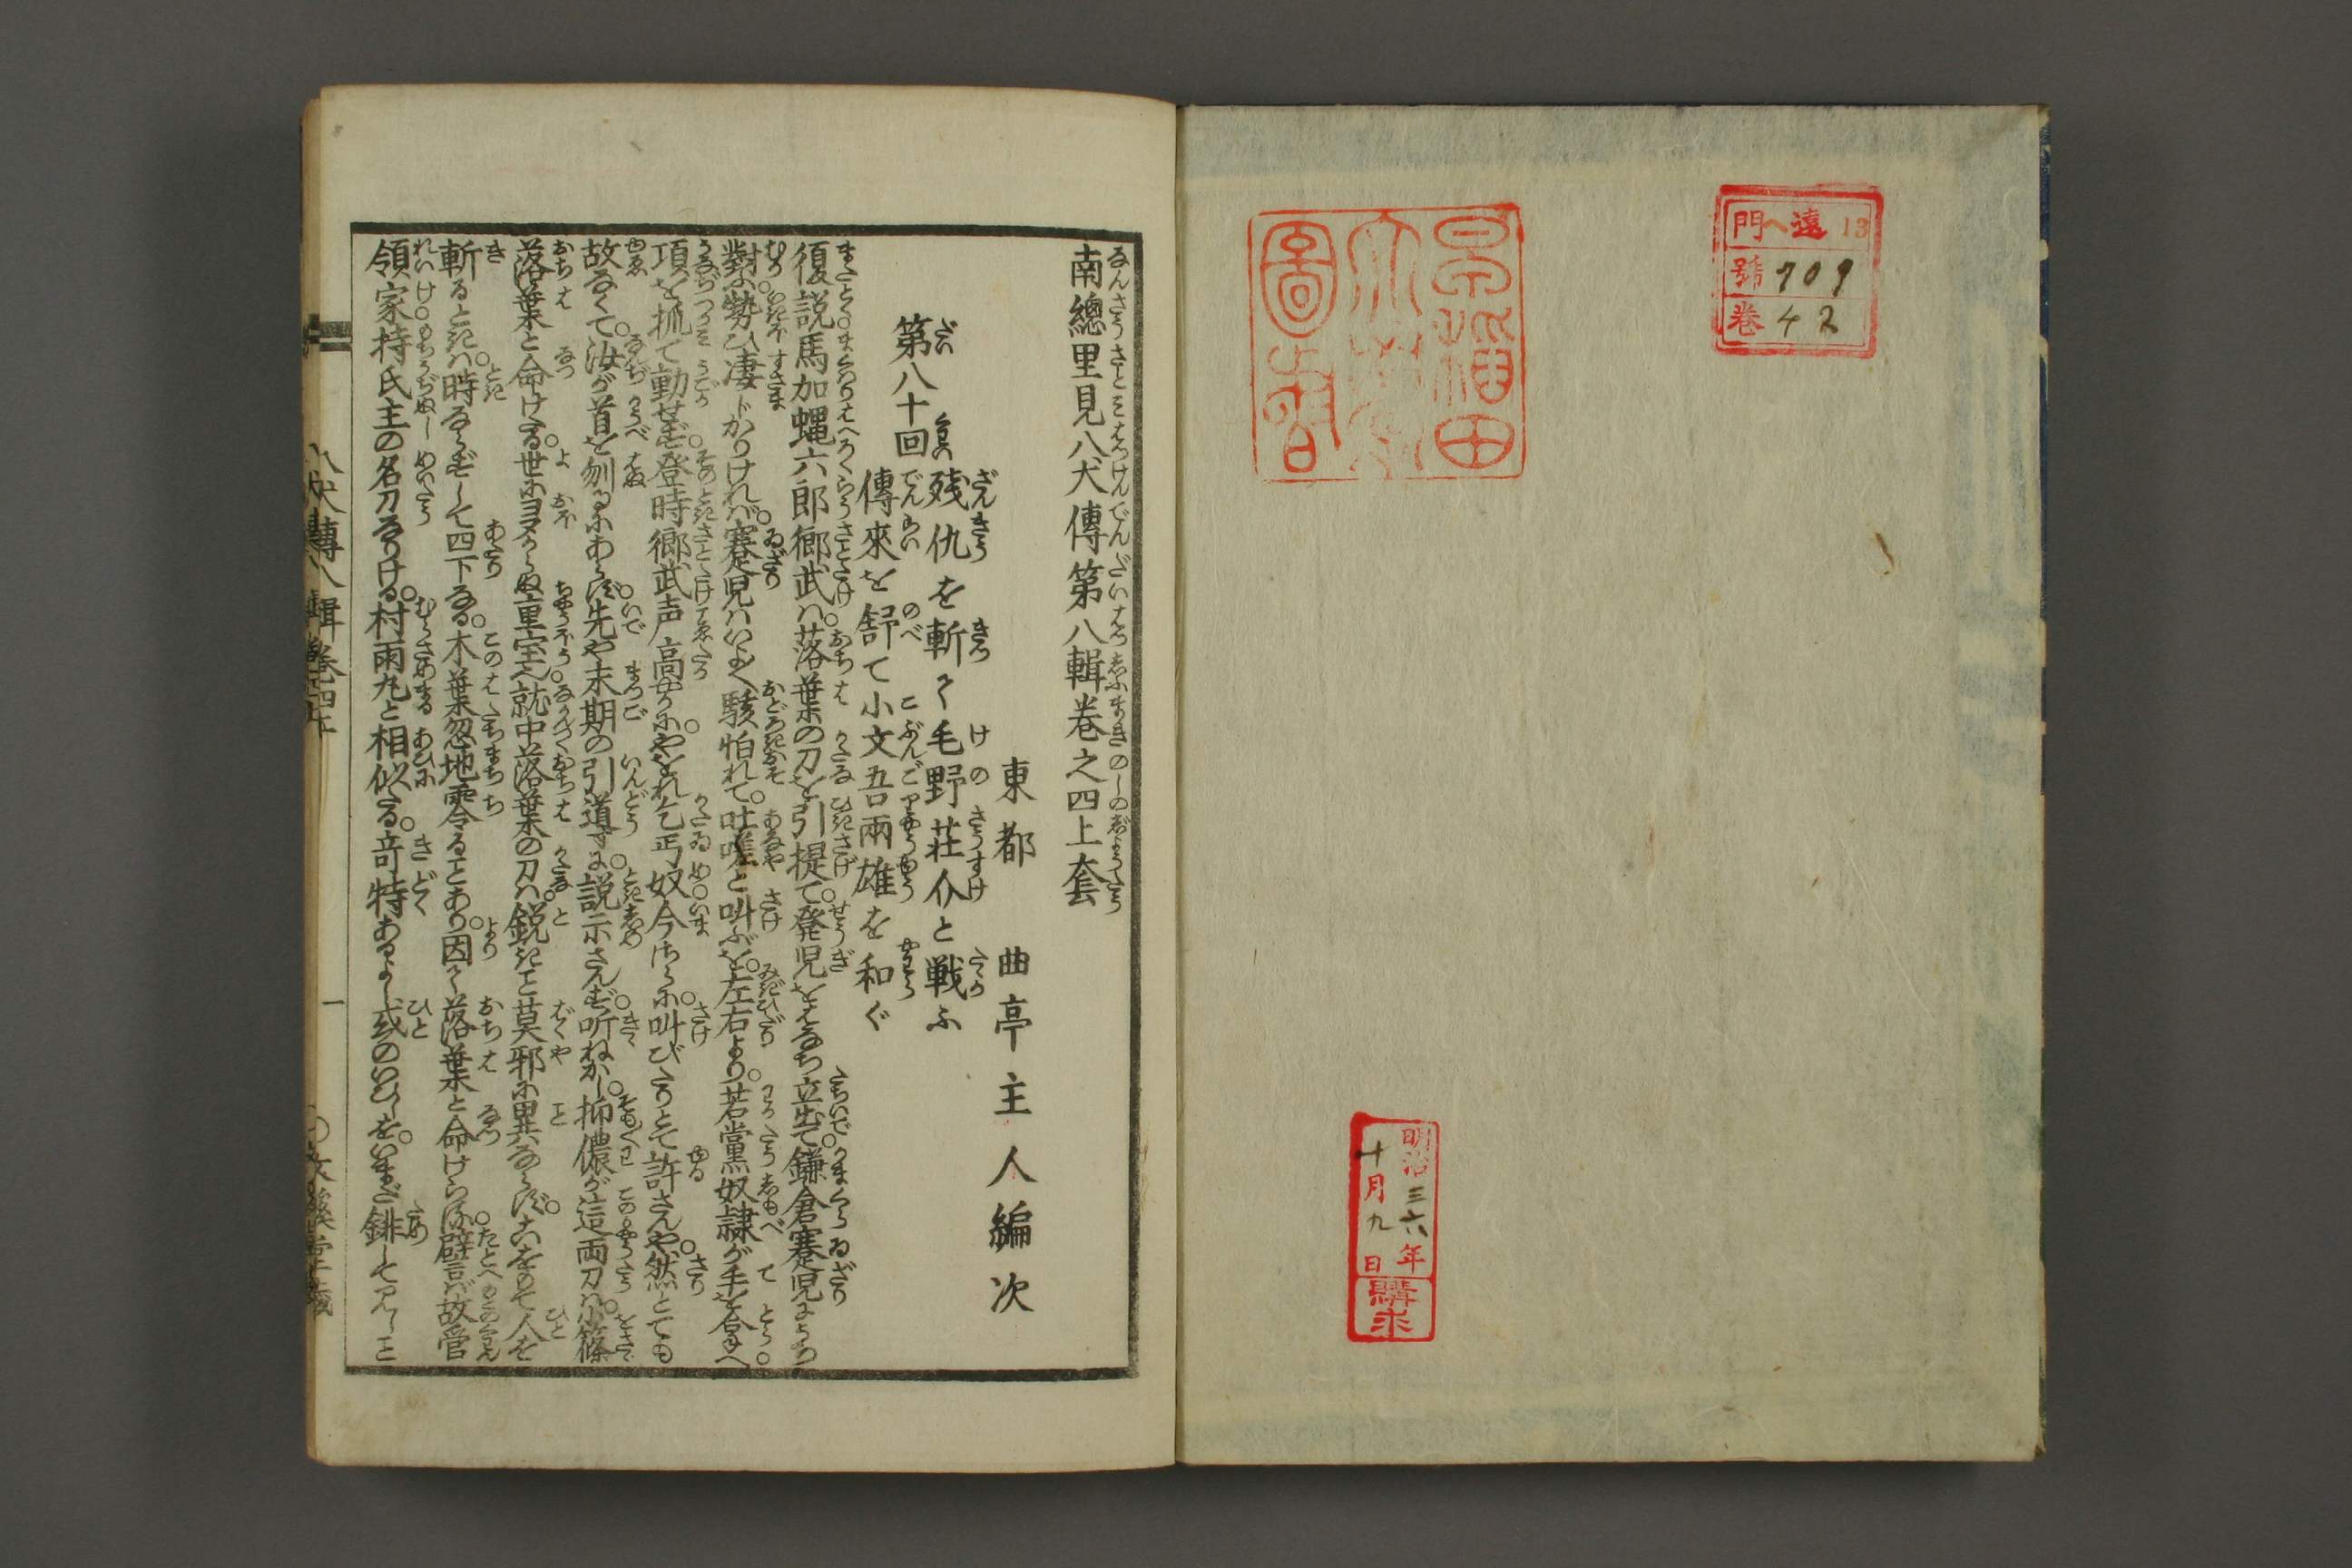 門ヘ遠13
號709
卷42
早稲田
大學
圖書
明治三六年
十月九日
購求
南總里見八犬傳第八輯巻之四上套
東都 曲亭主人編次
第八十回
残仇を斬て毛野荘介と戦ふ
傳來を舒て小文吾兩雄を和ぐ
復説馬加蝿六郎郷武ハ。落葉の刀を引提て。発児をはなち立出て。鎌倉蹇児に
對ふ勢ひ凄しかりければ。蹇児ハいよ〳〵駭怕れて。吐嗟と叫ぶを。左右より。若黨奴隷が手を拿へ
項を抓て動せず。登時郷武声高やかに。やをれ乞丐奴今さらに。叫びたりとて許さんや。然とても
故なくて。汝が首を刎るにあらず。先や末期の引道に。説示さんず。听ねかし。抑儂が這両刀ハ。小篠
落葉と命けたる。世にヨヌからぬ重宝也。就中落葉の刀ハ。鋭きこと莫邪に異ならず。こをもて人を
斬るときハ。時ならずして四下なる。木葉忽地零ることあり。因て落葉と命けらる。譬バ故管
領家持氏主の名刀なりける。村雨丸と相似たる。竒特あるよし。或のいひしを。いまだ錐して見しこと
八犬傳八輯巻四上
一